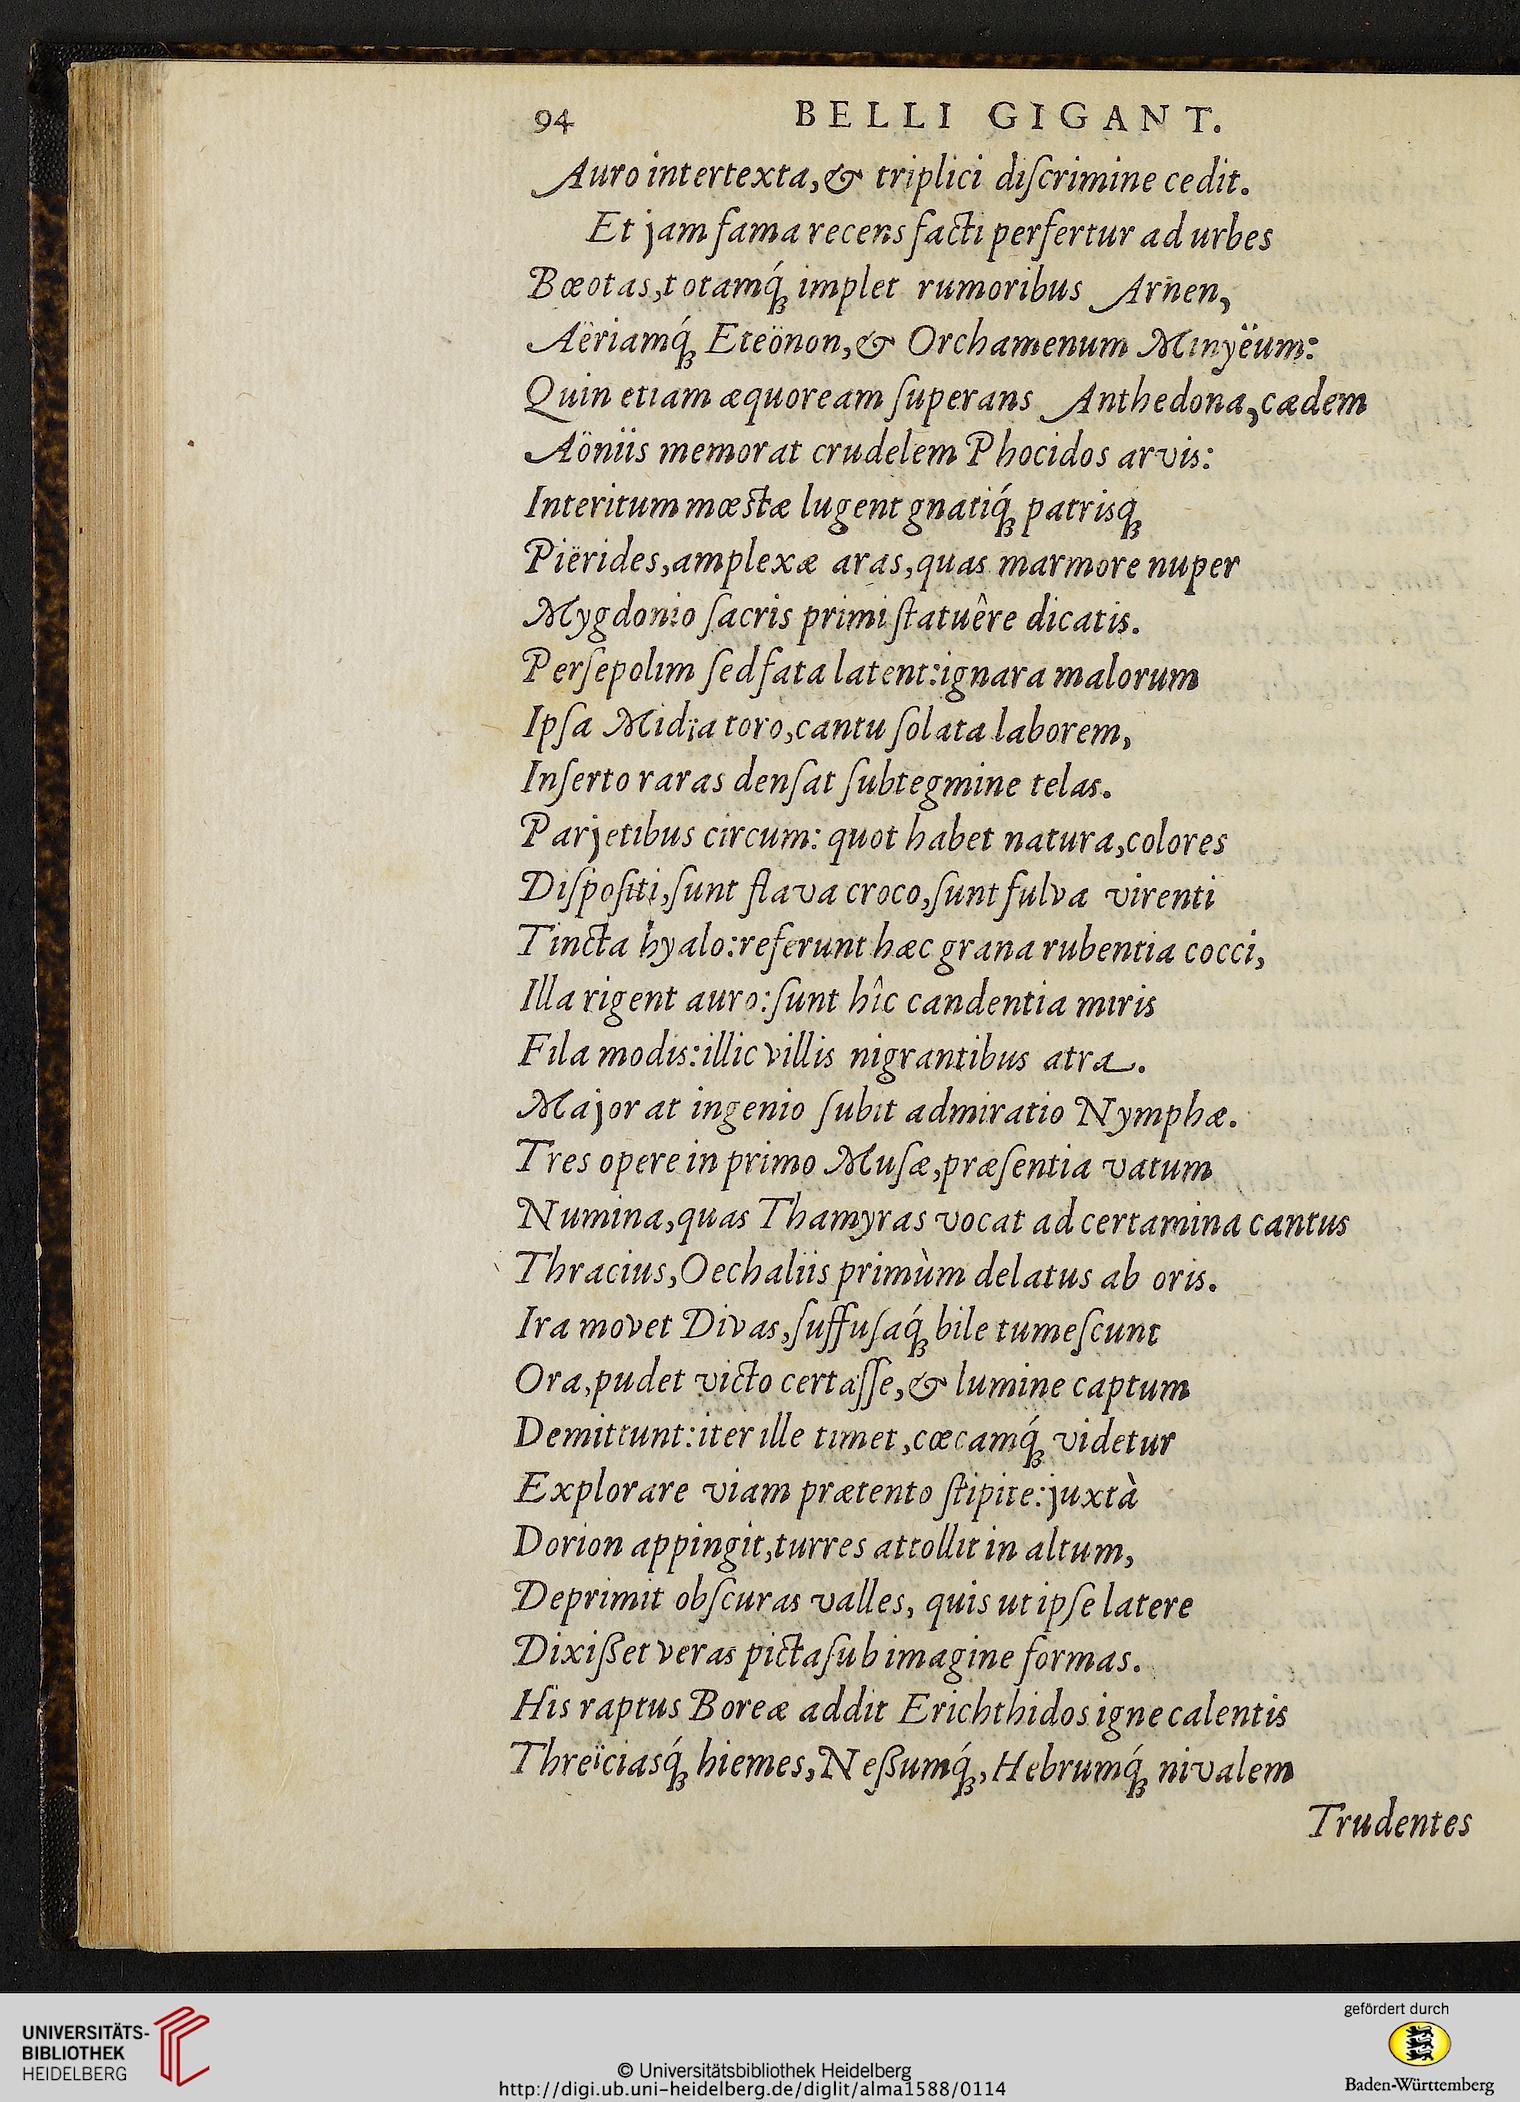 94 BELLI GIGANT.
Auro intertexta, & triplici diſcrimine cedit.
Et jam fama recens facti perfertur ad urbes
Bœotas, totamq́ꝫ implet rumoribus Arnen,
Aëriamq́ꝫ Eteönon, & Orchamenum Minyëum:
Quin etiam æquoream ſuperans Anthedona, cædem
Aöniis memorat crudelem Phocidos arvis:
Interitum mœstæ lugent gnatiq́ꝫ patrisqꝫ
Piërides, amplexæ aras, quas marmore nuper
Mygdonio ſacris primi ſtatuêre dicatis.
Perſepolim ſed fata latent: ignara malorum
Ipſa Midïa toro, cantu ſolata laborem,
Inſerto raras denſat ſubtegmine telas.
Parjetibus circum: quot habet natura, colores
Diſpoſiti, ſunt flava croco, ſunt fulva virenti
Tincta hyalo: referunt hæc grana rubentia cocci,
Illa rigent auro: ſunt hîc candentia miris
Fila modis: illic villis nigrantibus atra.
Major at ingenio ſubit admiratio Nymphæ.
Tres opere in primo Muſæ, præſentia vatum
Numina, quas Thamyras vocat ad certamina cantus
Thracius, Oechaliis primùm delatus ab oris.
Ira movet Divas, ſuffuſaq́ꝫ bile tumeſcunt
Ora, pudet victo certaſſe, & lumine captum
Demittunt: iter ille timet, cœcamq́ꝫ videtur
Explorare viam prætento ſtipite: juxtà
Dorion appingit, turres attollit in altum,
Deprimit obſcuras valles, quis ut ipſe latere
Dixißet veras picta ſub imagine formas.
His raptus Boreæ addit Erichthidos igne calentis
Threïciasq́ꝫ hiemes, Neßumq́ꝫ, Hebrumq́ꝫ nivalem
Trudentes
UNIVERSITÄTS-
BIBLIOTHEK
HEIDELBERG
© Universitätsbibliothek Heidelberg
http://digi.ub.uni-heidelberg.de/diglit/alma1588/0114
gefördert durch
Baden-Württemberg